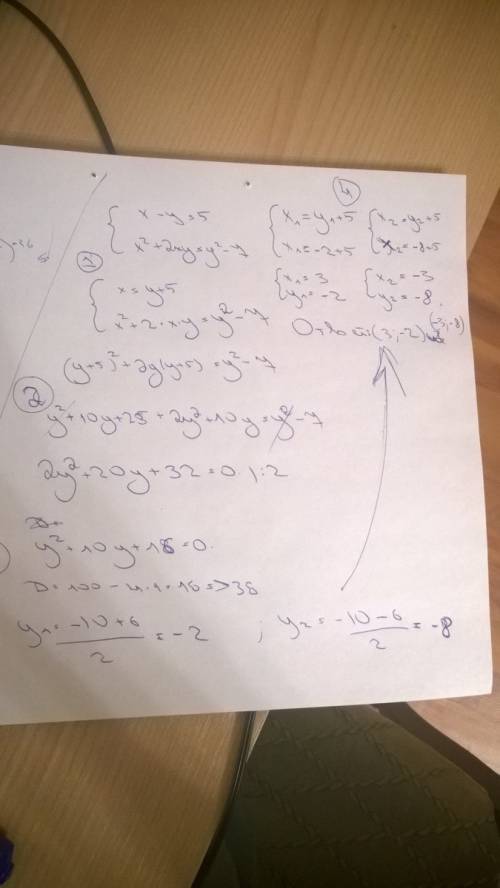 ④
{ x - y = 5
x² + 2xy = y² - 7
{ x₁ = y₁ + 5
x₁ = -2 + 5
{ x₂ = y₂ + 5
x₂ = -8 + 5
①
{ x = y + 5
x² + 2·x·y = y² - 7
{ x₁ = 3
y₁ = -2
{ x₂ = -3
y₂ = -8
Ответ (3; -2) (-3; -8)
(y+5)² + 2y(y+5) = y² - 7
②
y² + 10y + 25 + 2y² + 10y = y² - 7
2y² + 20y + 32 = 0 | : 2
y² + 10y + 16 = 0
D = 100 - 4·1·16 => 36
y₁ = (-10 + 6)/2 = -2 ; y₂ = (-10 - 6)/2 = -8